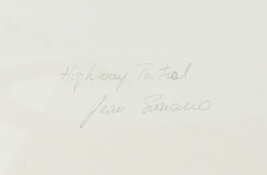 Highway Patrol
Jean Soriano